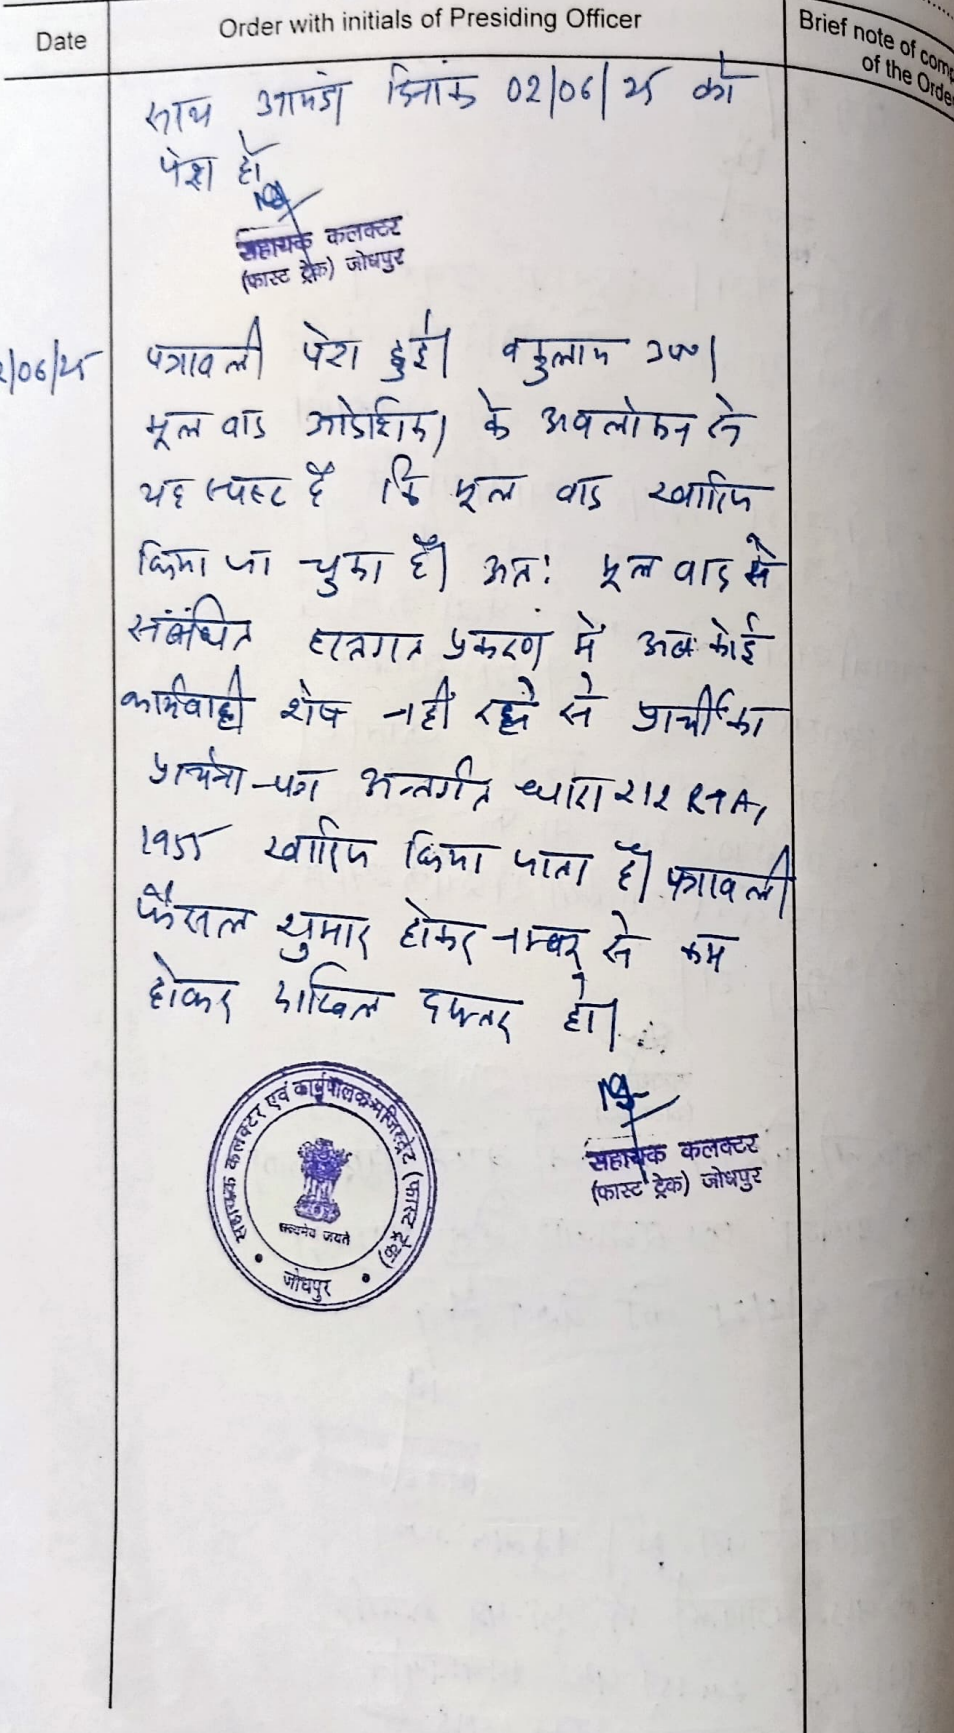 Date
Order with initials of Presiding Officer
Brief note of comp
of the Order
साथ आयंदा दिनांक 02/06/25 को
पेश हो
सहायक कलक्टर
(फास्ट ट्रेक) जोधपुर
2/06/25
पत्रावली पेश हुई। वकुलाय उप०।
मूल वाद आदेशिका के अवलोकन से
यह स्पष्ट है कि मूल वाद खारिज
किया जा चुका है। अतः मूल वाद से
संबंधित हस्तगत प्रकरण में अब कोई
कार्यवाही शेष नहीं रहने से प्रार्थी का
प्रार्थना-पत्र अन्तर्गत धारा 212 RTA,
1955 खारिज किया जाता है। पत्रावली
फैसल शुमार होकर नम्बर से कम
होकर दाखिल दफ्तर हो।
सहायक कलक्टर
(फास्ट ट्रेक) जोधपुर
सहायक कलक्टर एवं कार्यपालक मजिस्ट्रेट (फास्ट ट्रेक)
सत्यमेव जयते
जोधपुर